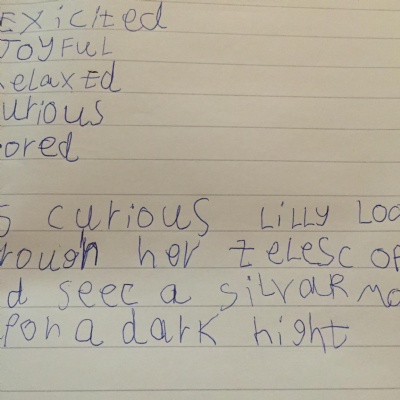 EXicited
JOYFUL
RelaxEd
urious
ored
s curious LiLLy Loo
rough her tELEScop
d seec a siLvaR Mo
pon a dark night